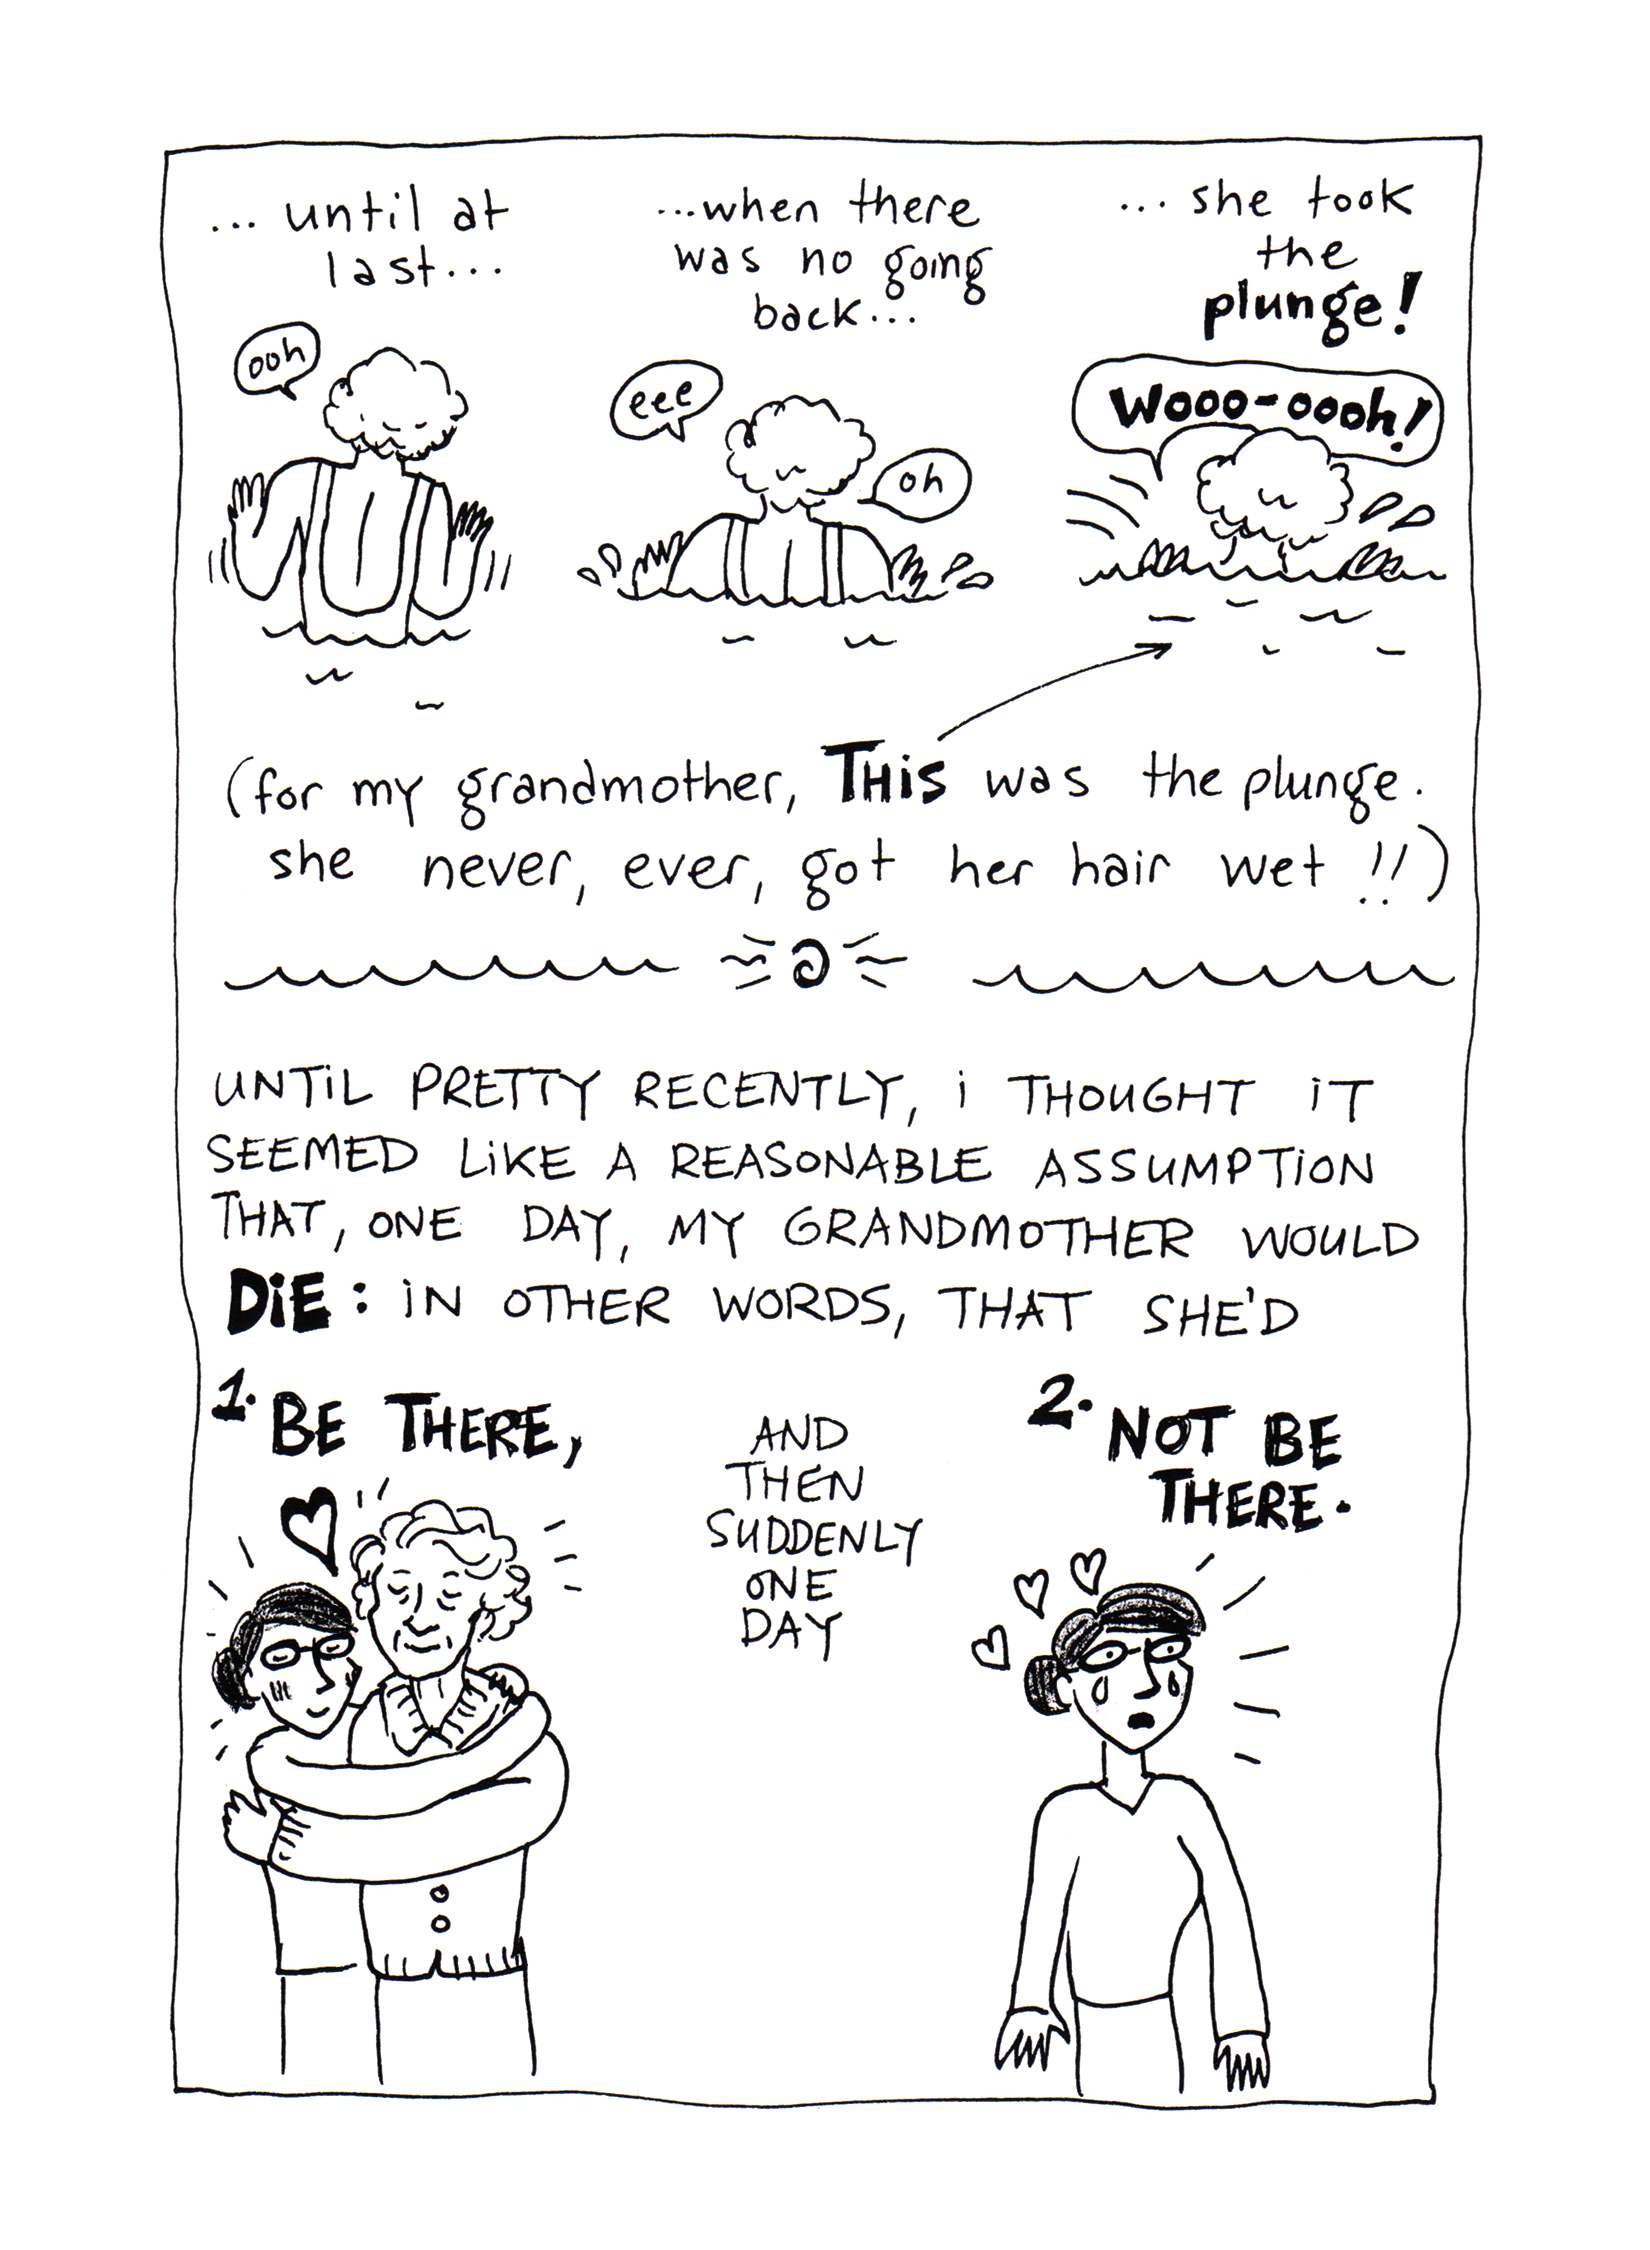 ... until at
last...
...when there
was no going
back...
... she took
the
plunge!
ooh
eee
oh
Wooo-oooh!
(for my grandmother, THiS was the plunge.
she never, ever, got her hair wet !!)
UNTiL PRETTY RECENTLY, i THOUGHT iT
SEEMED LiKE A REASONABLE ASSUMPTiON
THAT, ONE DAY, MY GRANDMOTHER WOULD
DiE: iN OTHER WORDS, THAT SHE'D
1. BE THERE,
AND
THEN
SUDDENLY
ONE
DAY
2. NOT BE
THERE.